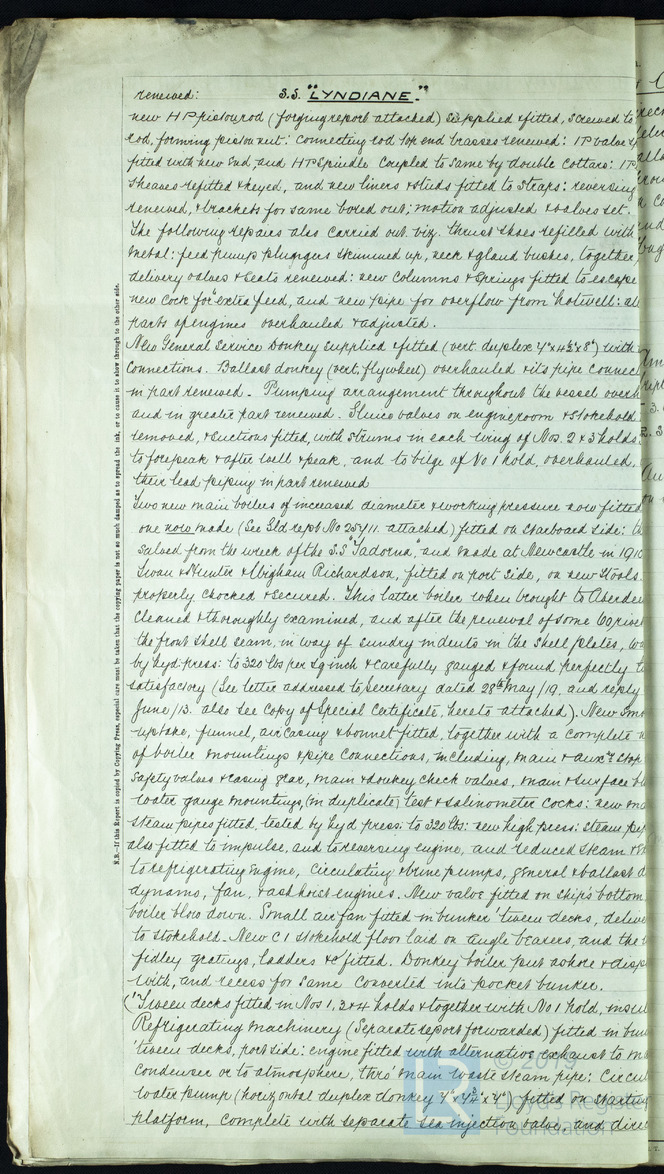 renewed:
S.S. "LYNDIANE."
new HP piston rod (forging report attached) supplied & fitted, screwed to
rod, forming piston nut: connecting rod top end brasses renewed: IP valve
fitted with new end, and HP Spindle coupled to same by double cottars: IP
sheaves refitted & keyed, and new liners & studs fitted to straps: reversing
renewed, & brackets for same bored out; motion adjusted & valves set.
The following repairs also carried out. viz. thrust shoes refilled with
metal: feed pump plungers skimmed up, neck & gland bushes, together
delivery valves & seats renewed: new columns & springs fitted to escape
new cock for "extra feed, and new pipe for overflow from hotwell: all
parts of engines overhauled & adjusted.
New General Service Donkey supplied & fitted (vert. duplex 7"x4½"x8") with
connections. Ballast donkey (vert. flywheel) overhauled & its pipe connec
in part renewed. Pumping arrangement throughout the vessel overh
and in greater part renewed. Sluice valves on engineroom & stokehold
removed, & suctions fitted, with strums in each wing of Nos. 2 & 3 holds
to forepeak & after well & peak, and to bilge of No 1 hold, overhauled,
their lead piping in part renewed
Two new main boilers of increased diameter & working pressure now fitted
one now made (See Gld rept No 25711 attached) fitted on starboard side: th
salved from the wreck of the S.S "Tadorna", and made at Newcastle in 1910
Swan & Hunter & Wigham Richardson, fitted on port side, on new stools
properly chocked & secured. This latter boiler when brought to Aberdee
cleaned & thoroughly examined, and after the renewal of some 60 rivet
the front shell seam, in way of sundry indents in the shell plates, wa
by hyd: press: to 320 lbs per sq inch & carefully gauged & found perfectly t
satisfactory (See letter addressed to Secretary dated 28th May /19, and reply
June /13. also see Copy of Special Certificate, hereto attached). New Smo
uptake, funnel, air casing & bonnet fitted, together with a complete n
of boiler mountings & pipe connections, including, main & auxy stop
safety valves & easing gear, main & donkey check valves, main & surface bl
water gauge mountings, (in duplicate) test & salinometer cocks: new ma
steam pipes fitted, tested by hyd press: to 320 lbs: new high press: steam pip
also fitted to impulse, and to reversing engine, and reduced steam & ex
to refrigerating engine, circulating & brine pumps, general & ballast d
dynamo, fan, & ash hoist engines. New valve fitted on ship's bottom
boiler blow down. Small air fan fitted in bunker 'tween decks, delive
to stokehold. New C I stokehold floor laid on angle bearers, and the b
fidley gratings, ladders &c fitted. Donkey boiler put ashore & disp
with, and recess for same converted into pocket bunker.
('Tween decks fitted in Nos 1, 3 & 4 holds & together with No 1 hold, insul
Refrigerating Machinery (Separate report forwarded) fitted in bun
'tween decks, port side: engine fitted with alternative exhaust to ma
condenser or to atmosphere, thro' main waste steam pipe: Circul
water pump (horizontal duplex donkey 4"x4½"x4") fitted on starting
platform, complete with separate sea injection valve, and dire
N.B.—If this Report is copied by Copying Press, especial care must be taken that the copying paper is not so much damped as to spread the ink, or to cause it to show through to the other side.
© 2019
Lloyd's Register
Foundation